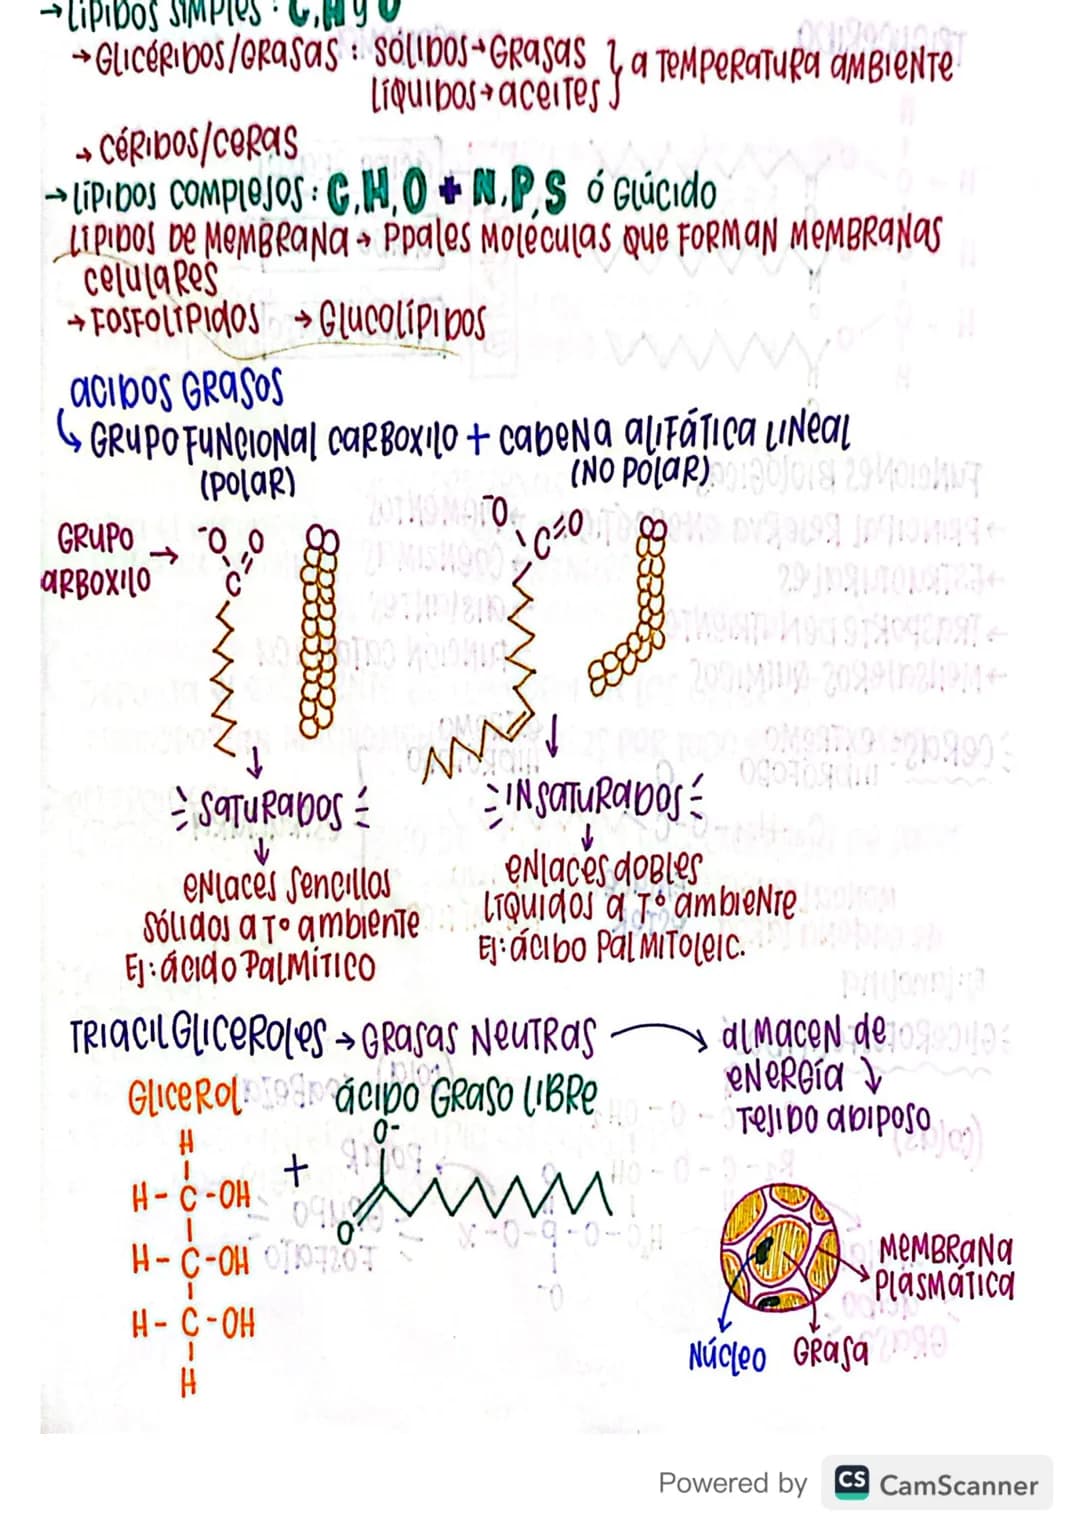 → LÍPIDOS SIMPLES: C,H y O
→ GLICÉRIDOS/GRASAS: SÓLIDOS → GRASAS } a TEMPERATURA AMBIENTE
LÍQUIDOS → aceITES
→ CÉRIDOS/CERAS
→ LÍPIDOS COMPLEJOS: C,H,O + N,P,S ó GLÚCIDO
LIPIDOS DE MEMBRANA → PPALES MOLÉCULAS QUE FORMAN MEMBRANAS
CELULARES
→ FOSFOLÍPIDOS → GLUCOLÍPIDOS
ACIDOS GRASOS
↳ GRUPO FUNCIONAL CARBOXILO + CADENA ALIFÁTICA LINEAL
(POLAR) (NO POLAR)
GRUPO → -O O
ARBOXILO C
-O C=O
SATURADOS INSATURADOS
ENLACES SENCILLOS
SÓLIDOS a Tº ambiente
EJ: ácido PALMÍTICO
ENLACES DOBLES
LÍQUIDOS a Tº ambiente
EJ: ácido PALMITOLEIC.
TRIACILGLICEROLES → GRASAS NEUTRAS → ALMACEN de
ENERGÍA ↓
TEJIDO ADIPOSO
GLICEROL ácido GRASO LIBRE
H
H - C - OH
H - C - OH
H - C - OH
H
+
O-
O
MEMBRANA
PLASMÁTICA
NÚCLEO GRASA
Powered by CS CamScanner